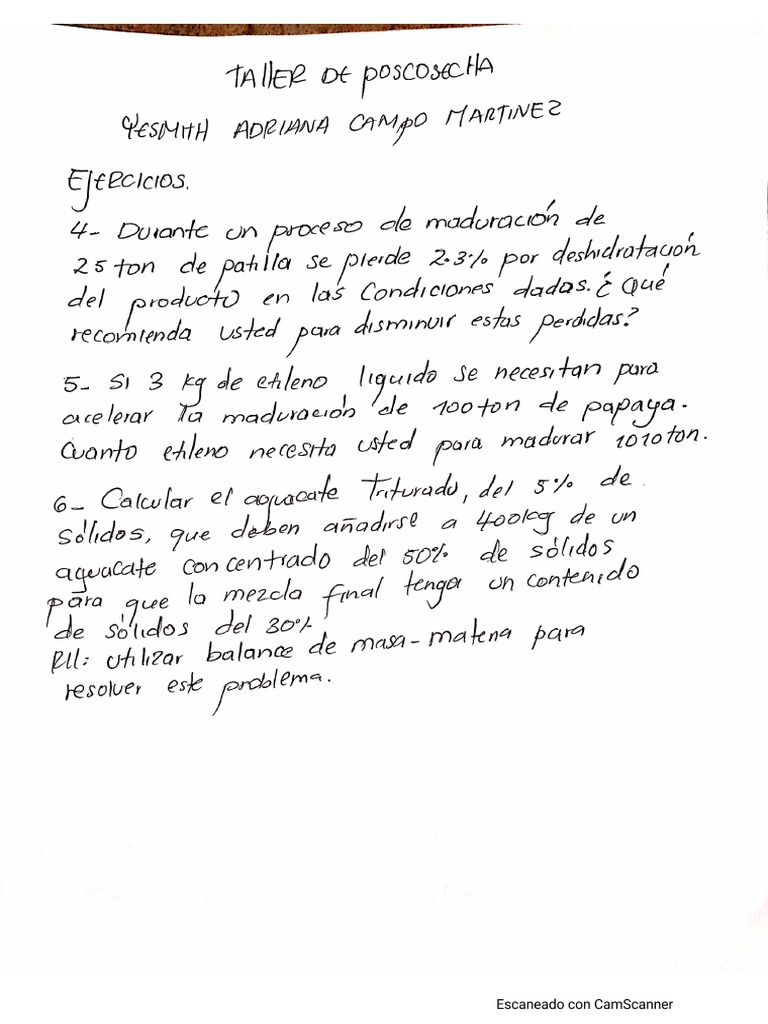 TALLER DE POSCOSECHA
YESMITH ADRIANA CAMPO MARTINEZ
EJERCICIOS.
4- Durante un proceso de maduración de
25 ton de patilla se pierde 2.3% por deshidratación
del producto en las Condiciones dadas. ¿Qué
recomienda usted para disminuir estas perdidas?
5- Si 3 kg de etileno liquido se necesitan para
acelerar la maduración de 100 ton de papaya.
Cuanto etileno necesita usted para madurar 1010 ton.
6- Calcular el aguacate Triturado, del 5% de
sólidos, que deben añadirse a 400kg de un
aguacate concentrado del 50% de sólidos
para que la mezcla final tenga un contenido
de sólidos del 30%
R//: utilizar balance de masa-materia para
resolver este problema.
Escaneado con CamScanner